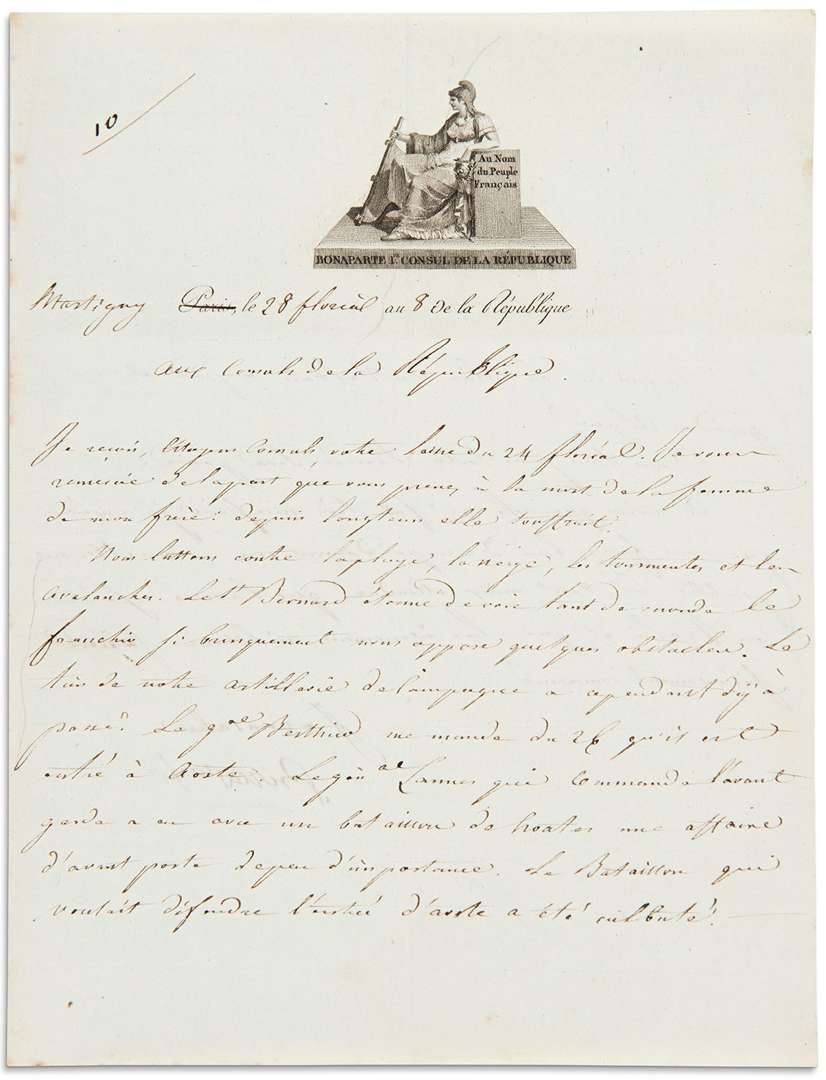 10
Au Nom
du Peuple
Français
BONAPARTE 1er. CONSUL DE LA RÉPUBLIQUE
Martigny Paris, le 28 floréal an 8 de la République
aux Consuls de la République.
Je reçois, Citoyens Consuls votre lettre du 24 floréal. Je vous
remercie de la part que vous prenez à la mort de la femme
de mon frère: depuis longtems elle souffrait.
Nous luttons contre la pluye, la neige, les tourmentes et les
avalanches. Le St Bernard étonné de voir tant de monde le
franchir si brusquement nous oppose quelques obstacles. Le
tiers de notre artillerie de Campagne a cependant déjà
passé. Le gal Berthier me mande du 26 qu'il est
entré à Aoste. Le génal Lannes qui commande l'avant
garde a eu avec un bataillon de hoates une affaire
d'avant poste de peu d'importance. Le Bataillon qui
voulait défendre l'entrée d'aoste a été culbuté.